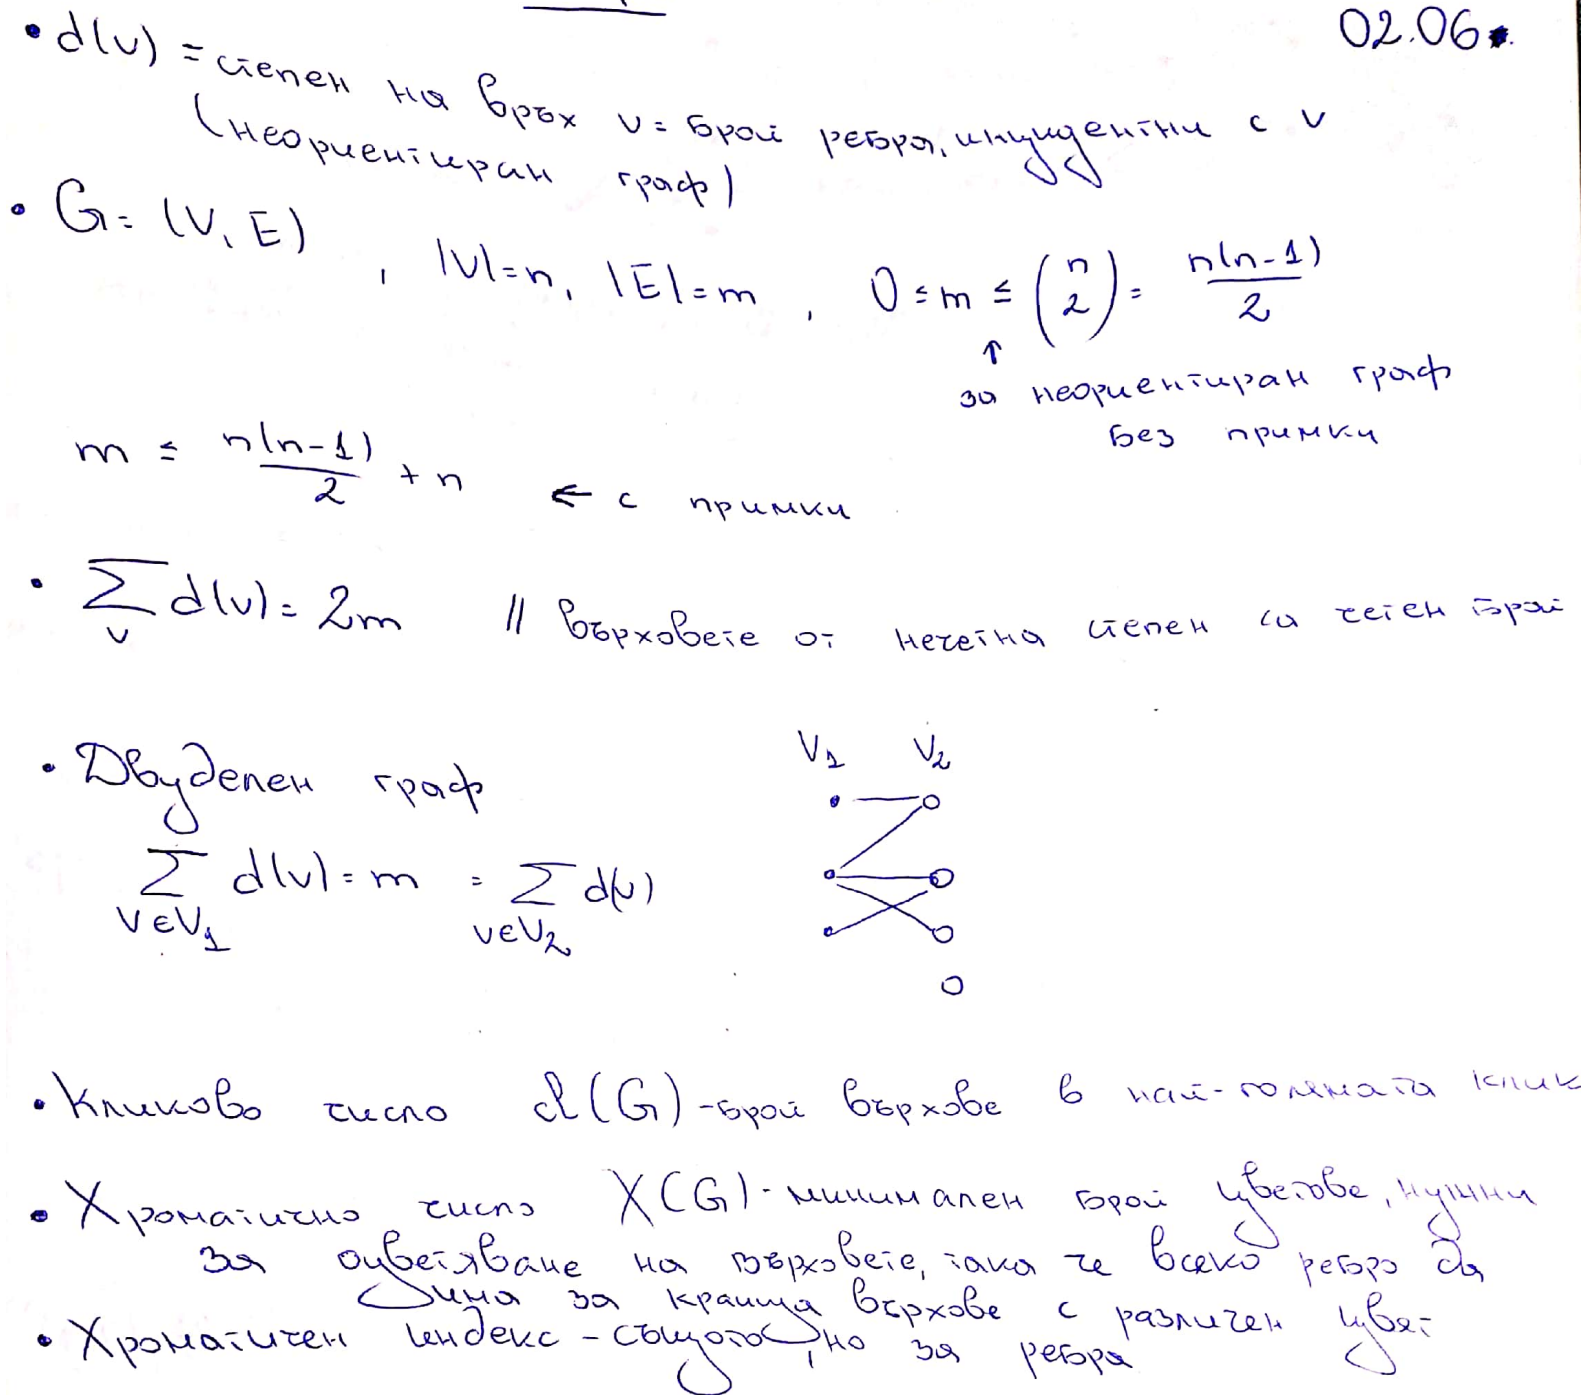 02.06.
• d(v) = степен на връх v = брой ребра, инцидентни с v
(неориентиран граф)
• G = (V, E), |V| = n, |E| = m, 0 ≤ m ≤ (n 2) = n(n-1)/2
↑
за неориентиран граф
без примки
m ≤ n(n-1)/2 + n ← с примки
• ∑ d(v) = 2m // върховете от нечетна степен са четен брой
v
V₁ V₂
• Двуделен граф
∑ d(v) = m = ∑ d(v)
v∈V₁ v∈V₂
• Кликово число cl(G) - брой върхове в най-голямата клик
• Хроматично число χ(G) - минимален брой цветове, нужни
за оцветяване на върховете, така че всяко ребро да
има за краища върхове с различен цвят
• Хроматичен индекс - същото, но за ребра